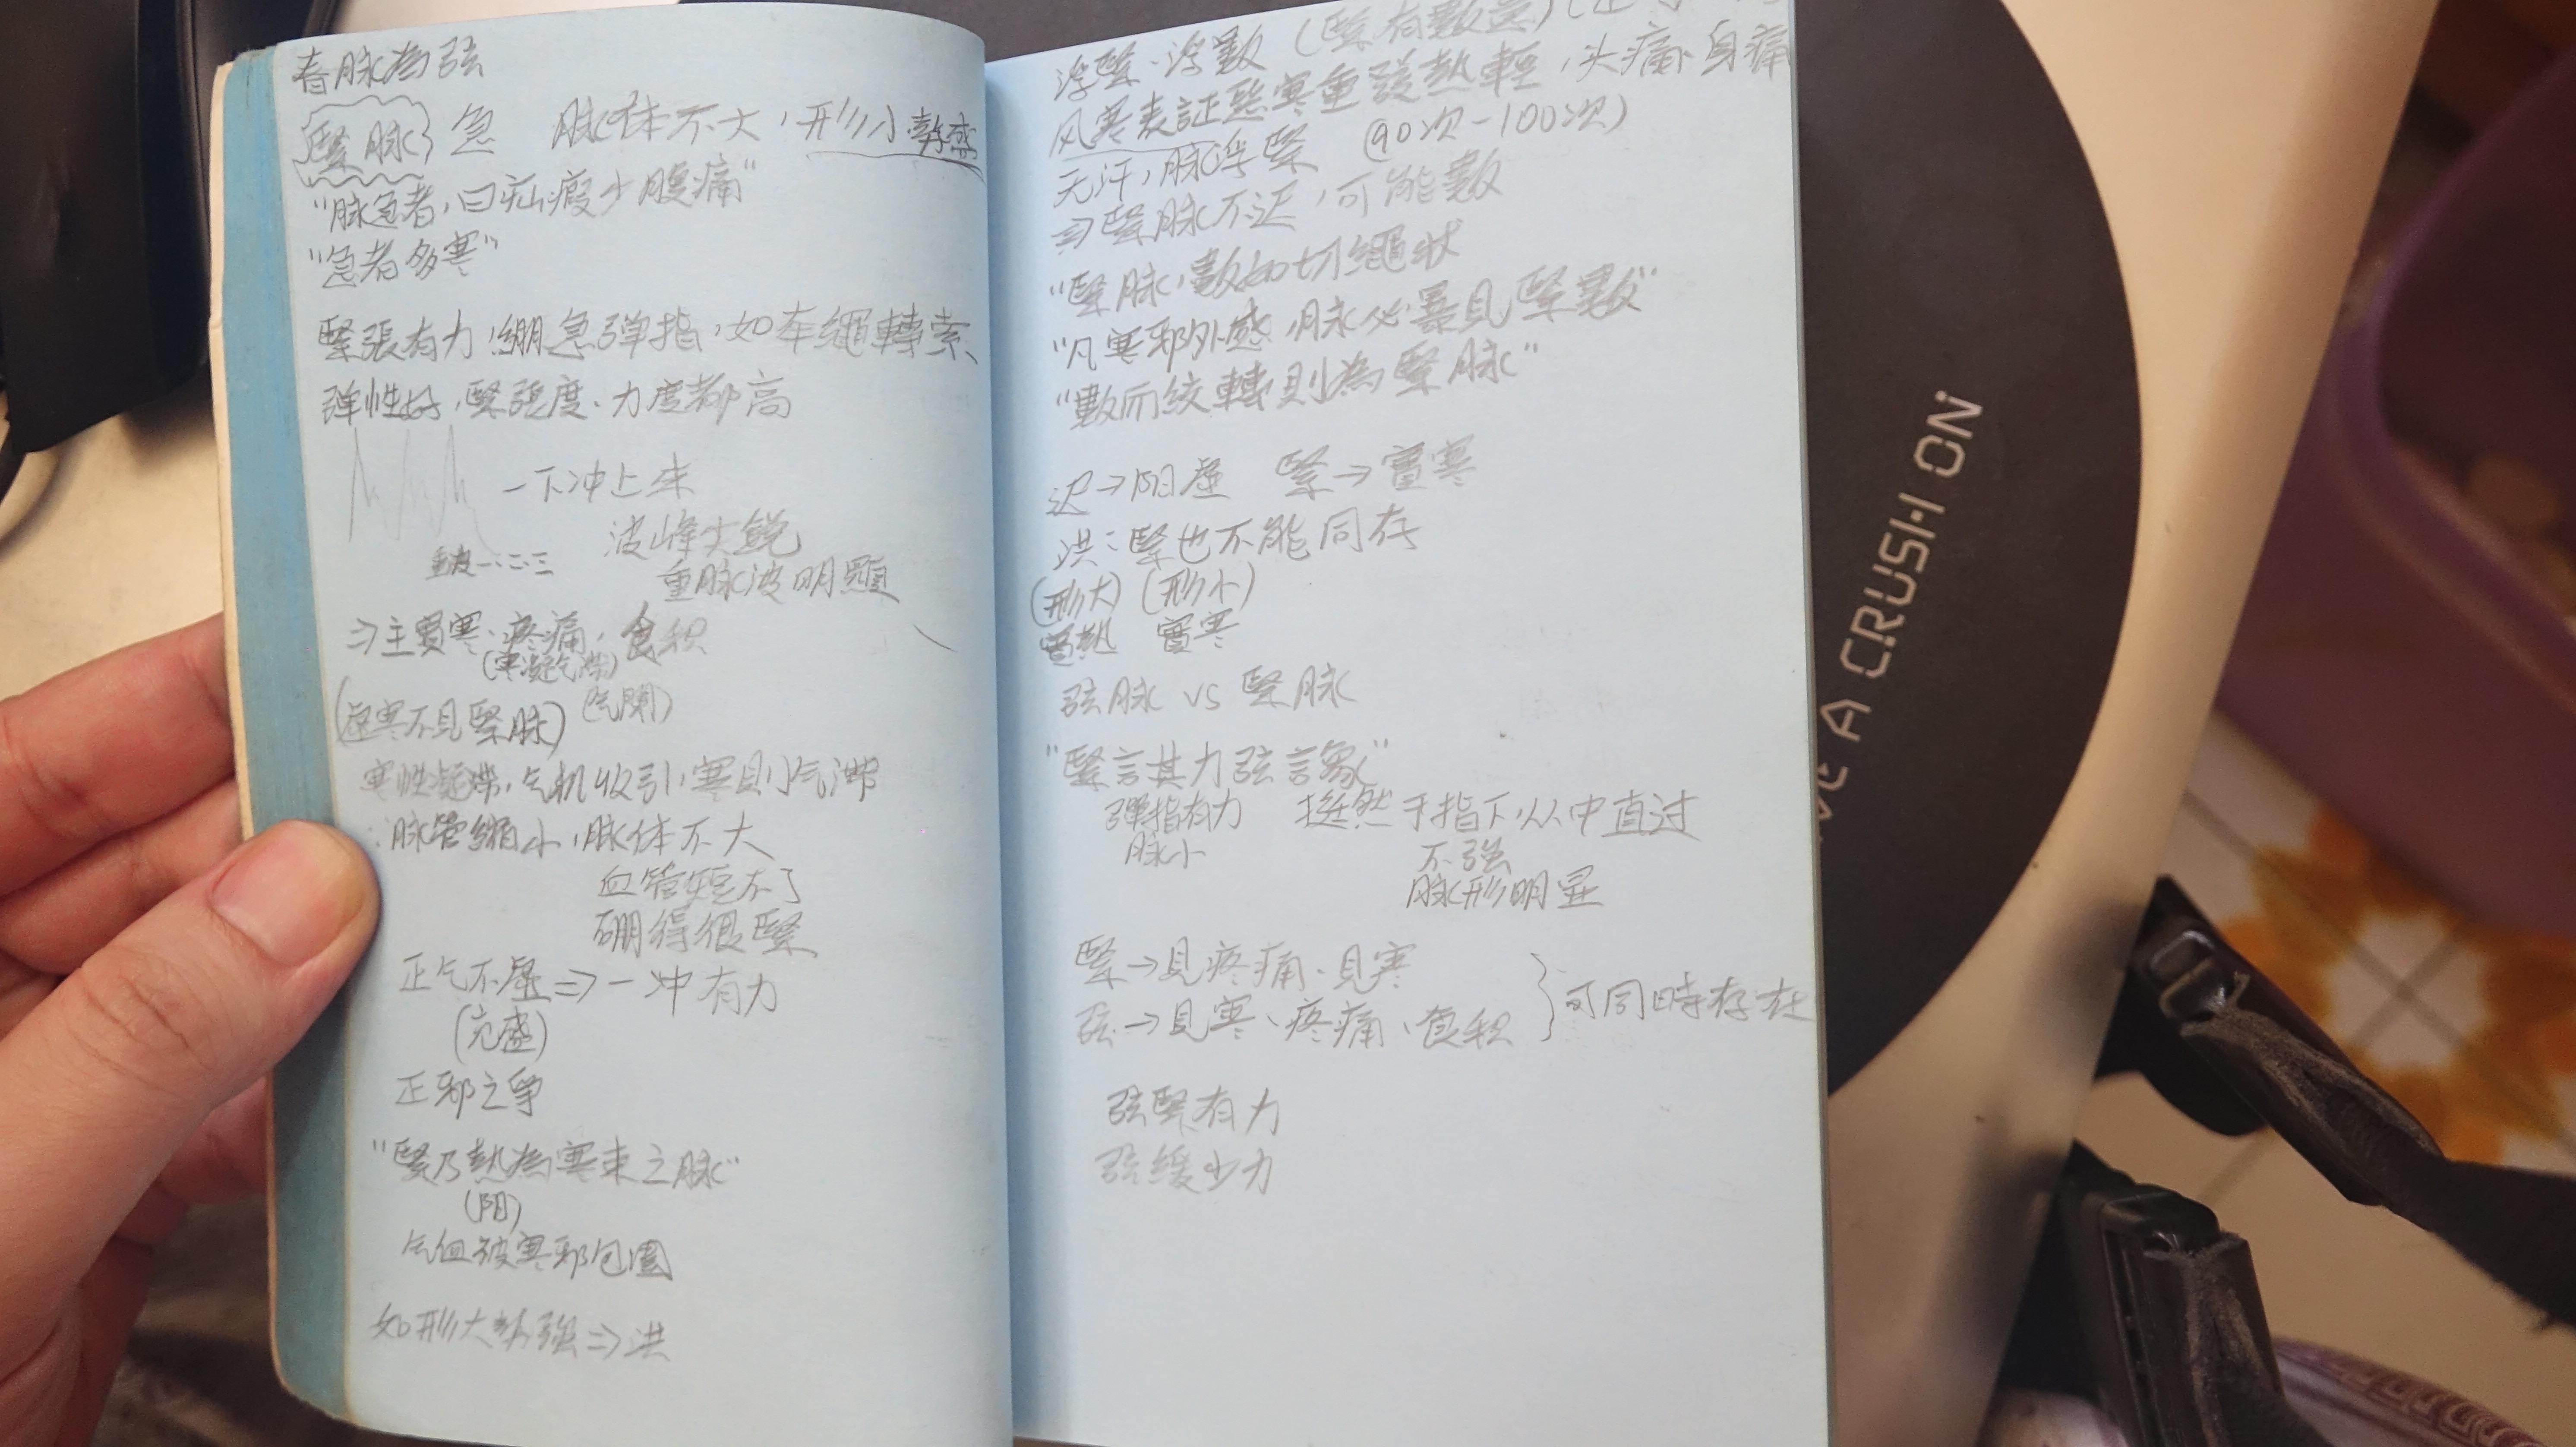 春脉為弦
緊脉 急 脉体不大，形小勢盛
"脉急者，曰疝瘕少腹痛"
"急者多寒"
緊張有力，繃急彈指，如牵繩轉索
弹性好，緊張度、力度都高
一下冲上来
波峰尖銳
重波一、二、三
重脉波明顯
⇒主實寒、疼痛、食积
(寒凝气滞)
(气閉)
(虛寒不見緊脉)
寒性凝滞，气机收引，寒則气滞
∴脉管縮小，脉体不大
血管短不了
硼得很緊
正气不虛⇒一冲有力
(充盛)
正邪之爭
"緊乃熱為寒束之脉"
(阳)
气血被寒邪包圍
如形大势强⇒洪
浮緊、浮數 (緊有數意)
风寒表証惡寒重發熱輕，头痛、身痛
无汗，脉浮緊 (90次-100次)
⇒緊脉不迟，可能數
"緊脉，數如切繩状
"凡寒邪外感，脉必暴見緊數"
"數而絞轉則為緊脉"
迟→阳虛 緊→實寒
洪：緊也不能同存
(形大) (形小)
實熱 實寒
弦脉 VS 緊脉
"緊言其力弦言象"
彈指有力 挺然于指下从中直过
脉小 不强
脉形明显
緊→見疼痛、見寒
弦→見寒、疼痛、食积 } 可同時存在
弦緊有力
弦緩少力
A CRUSH ON